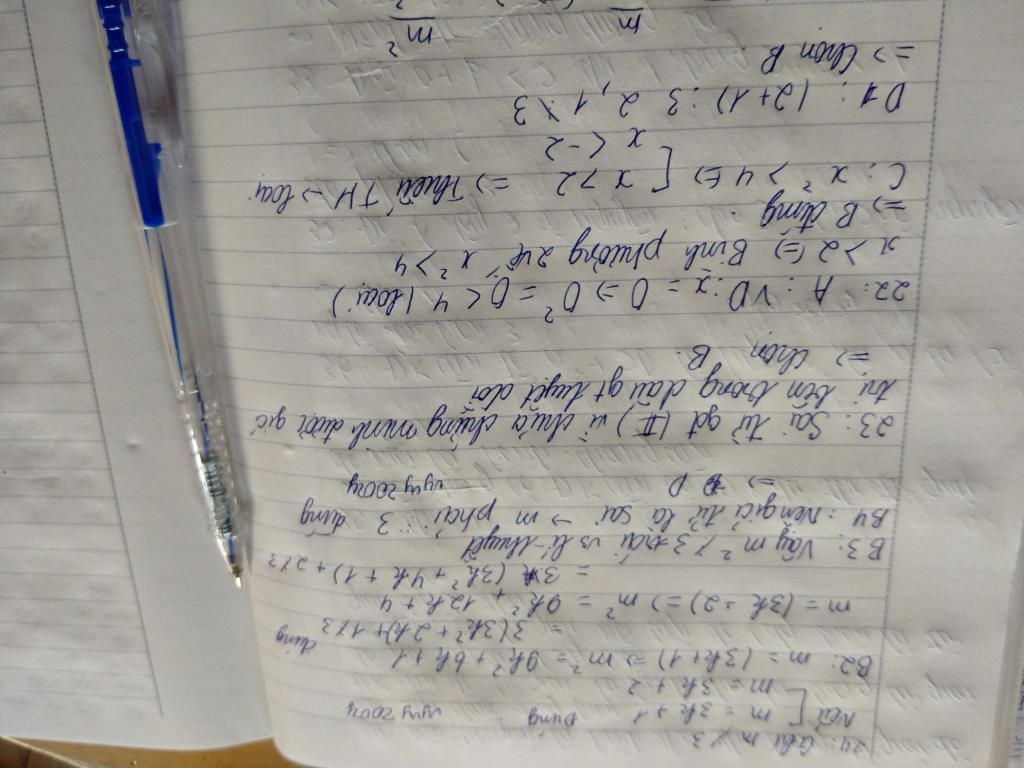 24: Ghi m ⋮̸ 3
Nếu [ m = 3k + 1 Dùng vyvy2004
m = 3k + 2
B2: m = (3k + 1) ⇒ m² = 9k² + 6k + 1
= 3(3k² + 2k) + 1 ⋮̸ 3 đúng
m = (3k + 2) ⇒ m² = 9k² + 12k + 4
= 3(3k² + 4k + 1) + 1 ⋮̸ 3
B3: Vậy m² ⋮̸ 3 trái vs lí thuyết
B4: Nên giả tử là sai → m phải ⋮ 3 đúng
⇒ D vyvy2004
23: Sai từ gđ (II) vì chưa chứng minh dưới giá
trị bên trong dấu gt tuyệt đối
⇒ Chọn B.
22: A: VD: x = 0 ⇒ 0² = 0 < 4 (loại)
x > 2 ⇔ Bình phương 2 vế x² > 4
⇒ B đúng
C: x² > 4 ⇔ [ x > 2 ⇒ Thiếu TH → loại
x < -2
D: (2+1) ⋮ 3 2, 1 ⋮̸ 3
⇒ Chọn B
m²
m